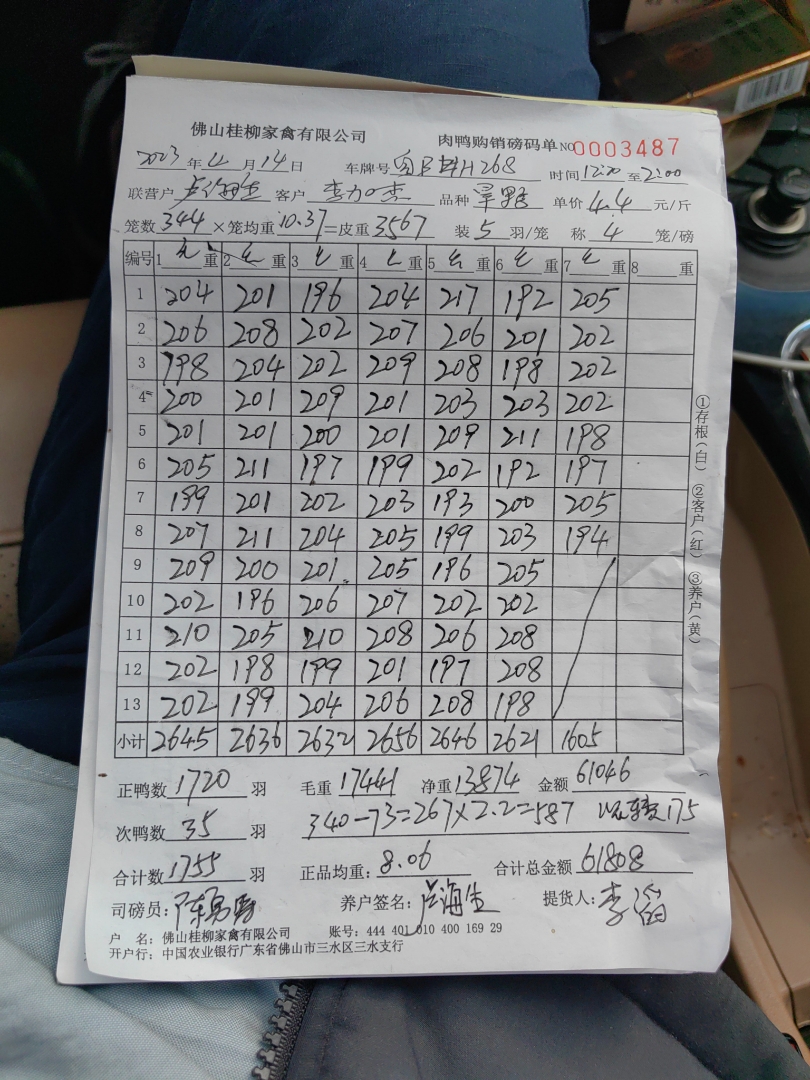 佛山桂柳家禽有限公司 肉鸭购销磅码单 NO 0003487
2023 年 11 月 14 日 车牌号 H268 时间 12:20 至 2:00
联营户 客户 品种 旱鸭 单价 4.4 元/斤
笼数 344 ×笼均重 10.37 =皮重 3567 装 5 羽/笼 称 4 笼/磅
编号 1 重 2 重 3 重 4 重 5 重 6 重 7 重 8 重
1 204 201 196 204 217 192 205
2 206 208 202 207 206 201 202
3 198 204 202 209 208 198 202
4 200 201 209 201 203 203 202
5 201 201 200 201 209 211 198
6 205 211 197 199 202 192 197
7 199 201 202 203 193 200 205
8 207 211 204 205 199 203 194
9 209 200 201 205 196 205
10 202 196 206 207 202 202
11 210 205 210 208 206 208
12 202 198 199 201 197 208
13 202 199 204 206 208 198
小计 2645 2636 2632 2656 2646 2621 1605
①存根(白) ②客户(红) ③养户(黄)
正鸭数 1720 羽 毛重 17441 净重 13874 金额 61046
次鸭数 35 羽 340-73=267×2.2=587 175
合计数 1755 羽 正品均重: 8.06 合计总金额 61808
司磅员: 养户签名: 卢海生 提货人: 李
户 名: 佛山桂柳家禽有限公司 账号: 444 401 010 400 169 29
开户行: 中国农业银行广东省佛山市三水区三水支行